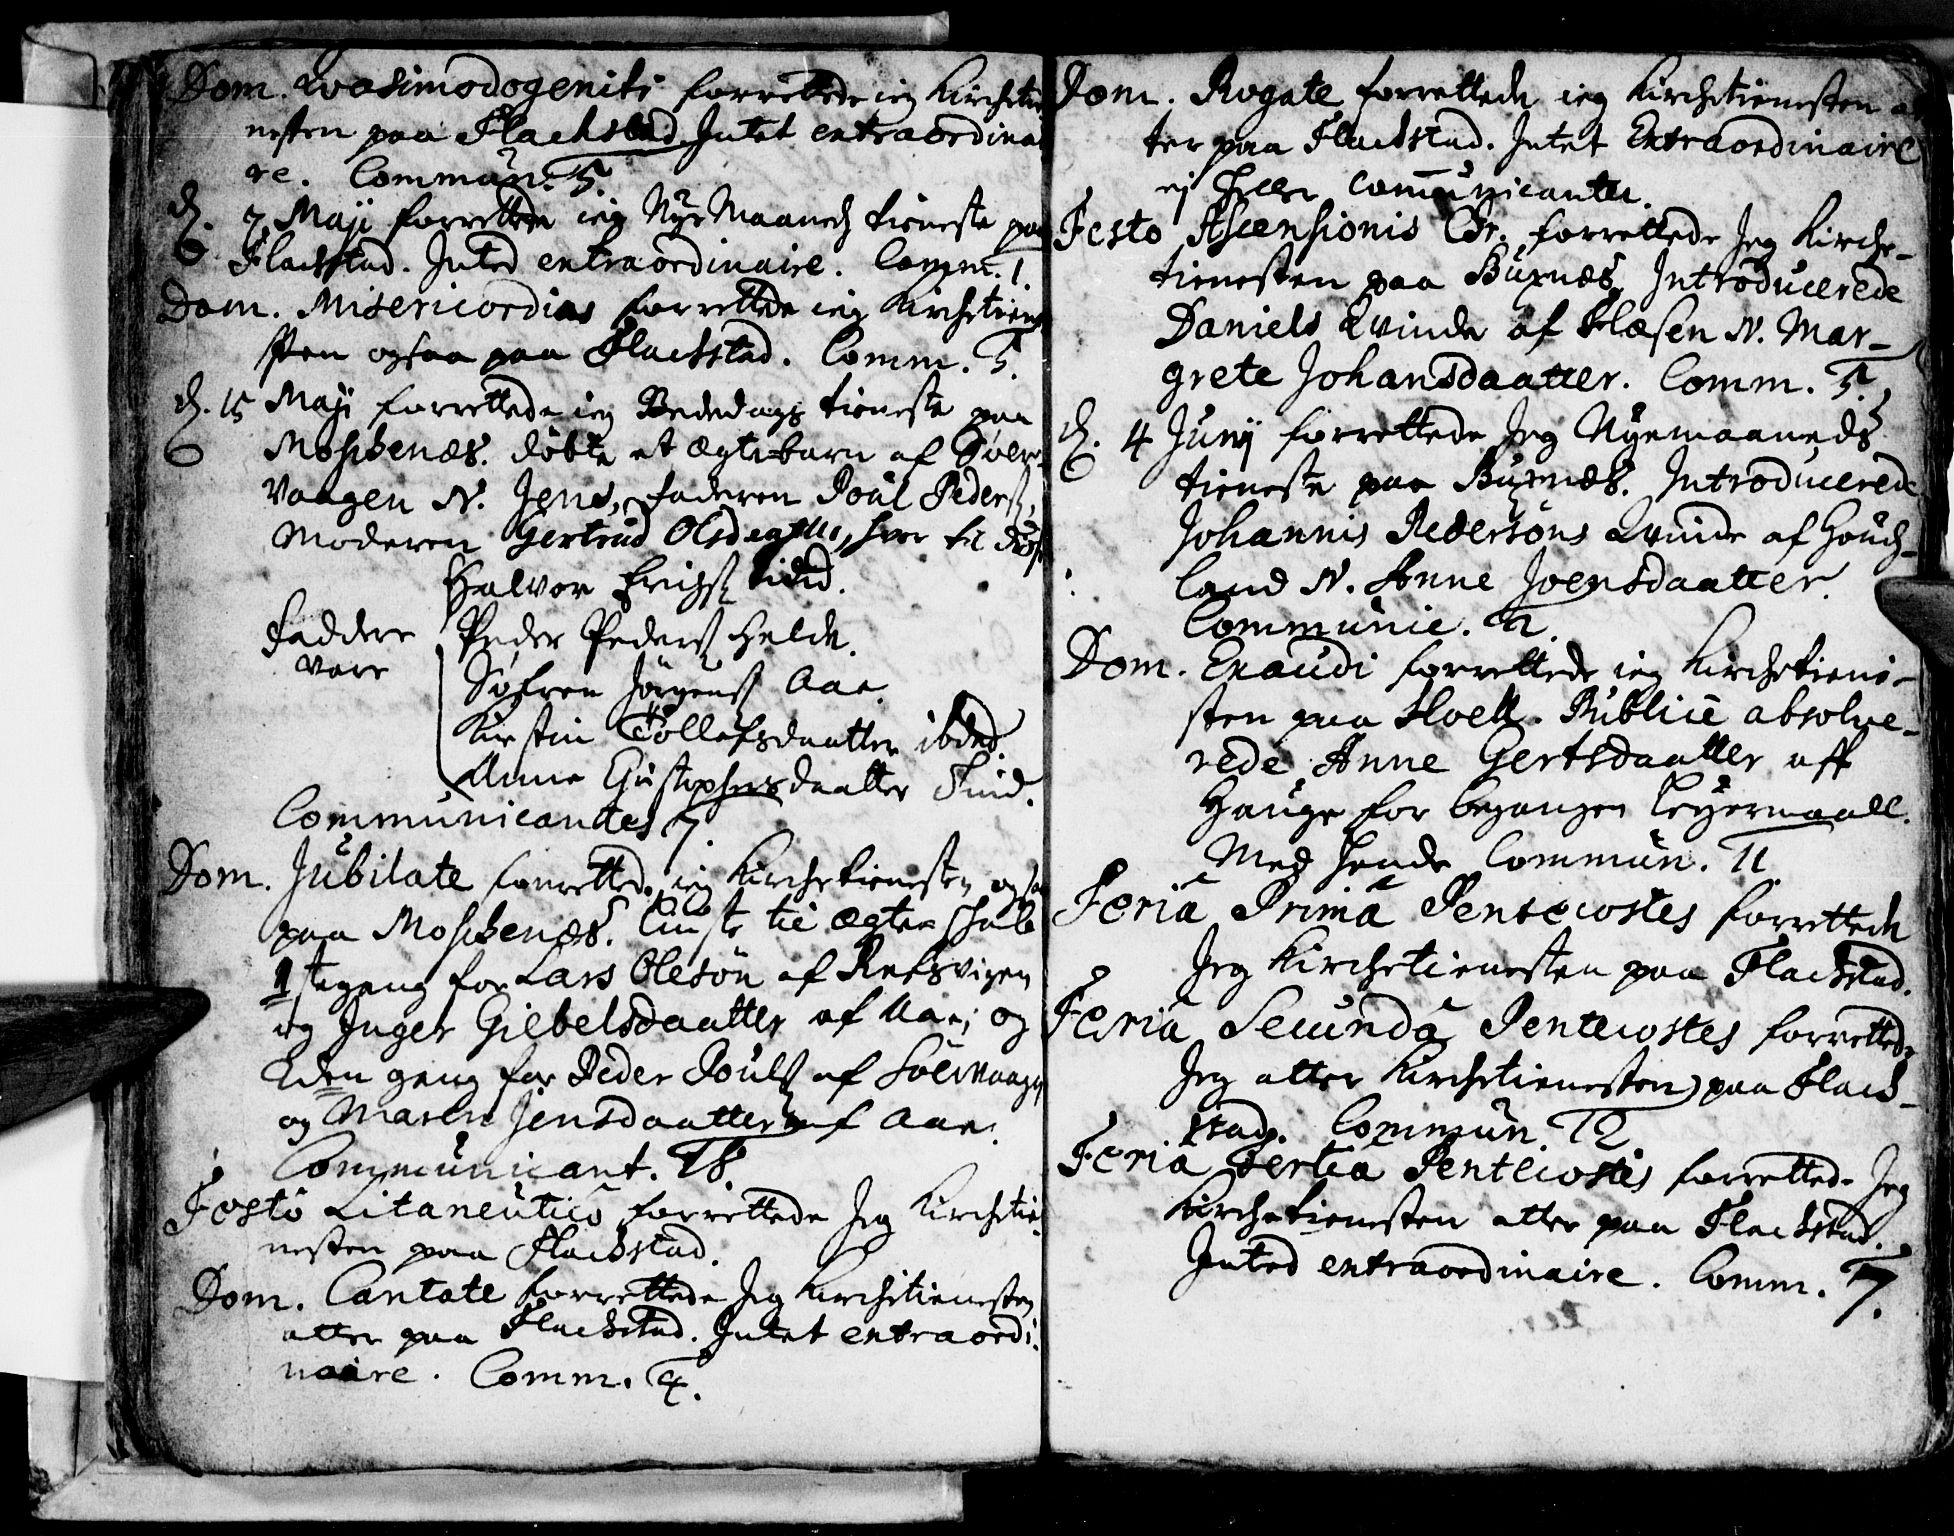 Dom. Qvasimodogeniti forrettede ieg Kirchetie
nesten paa Flackstad Intet extraordinai
re. Commun. 5.
d. 7 Maji forrettede ieg Nye Maaneds tieneste paa
Flackstad. Inted extraordinaire. Comm. 1.
Dom. Misericordias forrettede ieg Kirchetiene
sten ogsaa paa Flackstad. Comm. 5.
d. 15 Maji forrettede ieg Bededags tieneste paa
Moschenæs. døbte et ægte barn af Søer
vaagen N. Jens, faderen Poul Peders,
Moderen Gertrud Olsdaatter, hver til
Halvor Erichs Sund.
Faddere Peder Peders Helde.
vare Søfren Jørgens Aae
Kirstin Tollefsdaatter ibid.
Anne Gustaphsdaatter Sund.
Communicantes 7.
Dom. Jubilate forrettede ieg Kirchetienesten ogsaa
paa Moschenæs. Liuste til ægteschab
1ste gang for Lars Olesøn af Reksvigen
og Inger Giebelsdaatter af Aae; og
2den gang for Peder Pouls af Sørvaagen
og Maren Jensdaatter af Aae.
Communicant. 18.
Festo Litaneutico forrettede Jeg Kirchetie
nesten paa Flackstad.
Dom. Cantate forrettede Jeg Kirchetienesten
atter paa Flackstad. Intet extraordi
naire. Comm. 4.
Dom. Rogate forrettede ieg Kirchetienesten at
ter paa Flackstad. Intet Extraordinaire
ej heller Communicanter.
Festo Ascensionis Chr. forrettede Jeg Kirche-
tienesten paa Buxnæs, Introducerede
Daniels Qvinde af Flæsen N. Mar-
grete Johansdaatter. Comm. 5.
d. 4 Junij forrettede Jeg Nyemaaneds
tieneste paa Buxnæs. Introducerede
Johannis Pedersøns Qvinde af Houch-
land N. Anne Joensdaatter.
Communic. 2.
Dom. Exaudi forrettede ieg Kirchetiene-
sten paa Hoell. Publice absolve-
rede Anne Gertsdaatter aff
Hauge for begangen Leyermaall.
Med hende Commun. 11
Feria Prima Pentecostes forrettede
Jeg Kirchetienesten paa Flackstad.
Feria Secunda Pentecostes forrettede
Jeg atter Kirchetienesten paa Flack-
stad. Commun. 12
Feria Tertia Pentecostes forrettede Jeg
Kirchetienesten atter paa Flackstad.
Inted extraordinaire. Comm. 17.